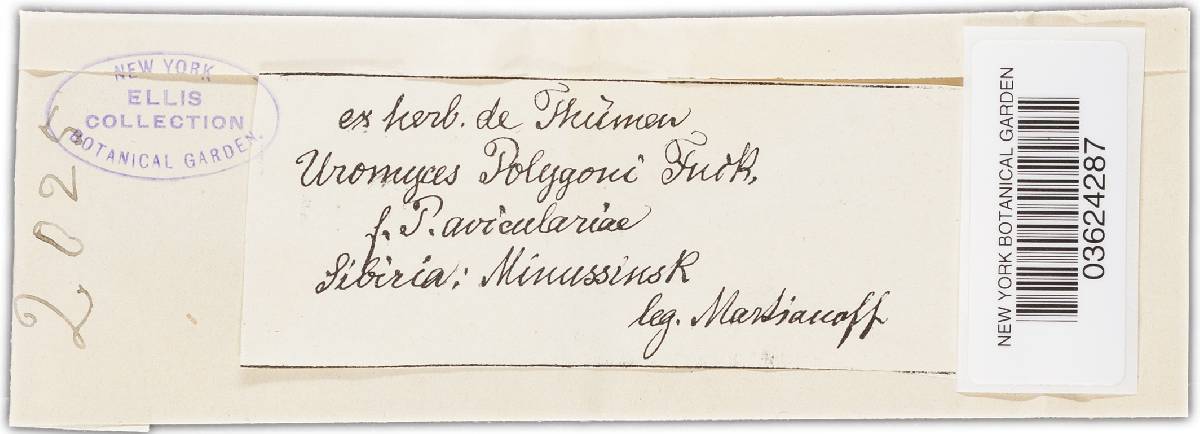 NEW YORK
ELLIS
COLLECTION
BOTANICAL GARDEN.
2025
ex herb. de Thümen
Uromyces Polygoni Fuck,
f. P. aviculariae
Sibiria: Minussinsk
leg. Martianoff
NEW YORK BOTANICAL GARDEN
03624287